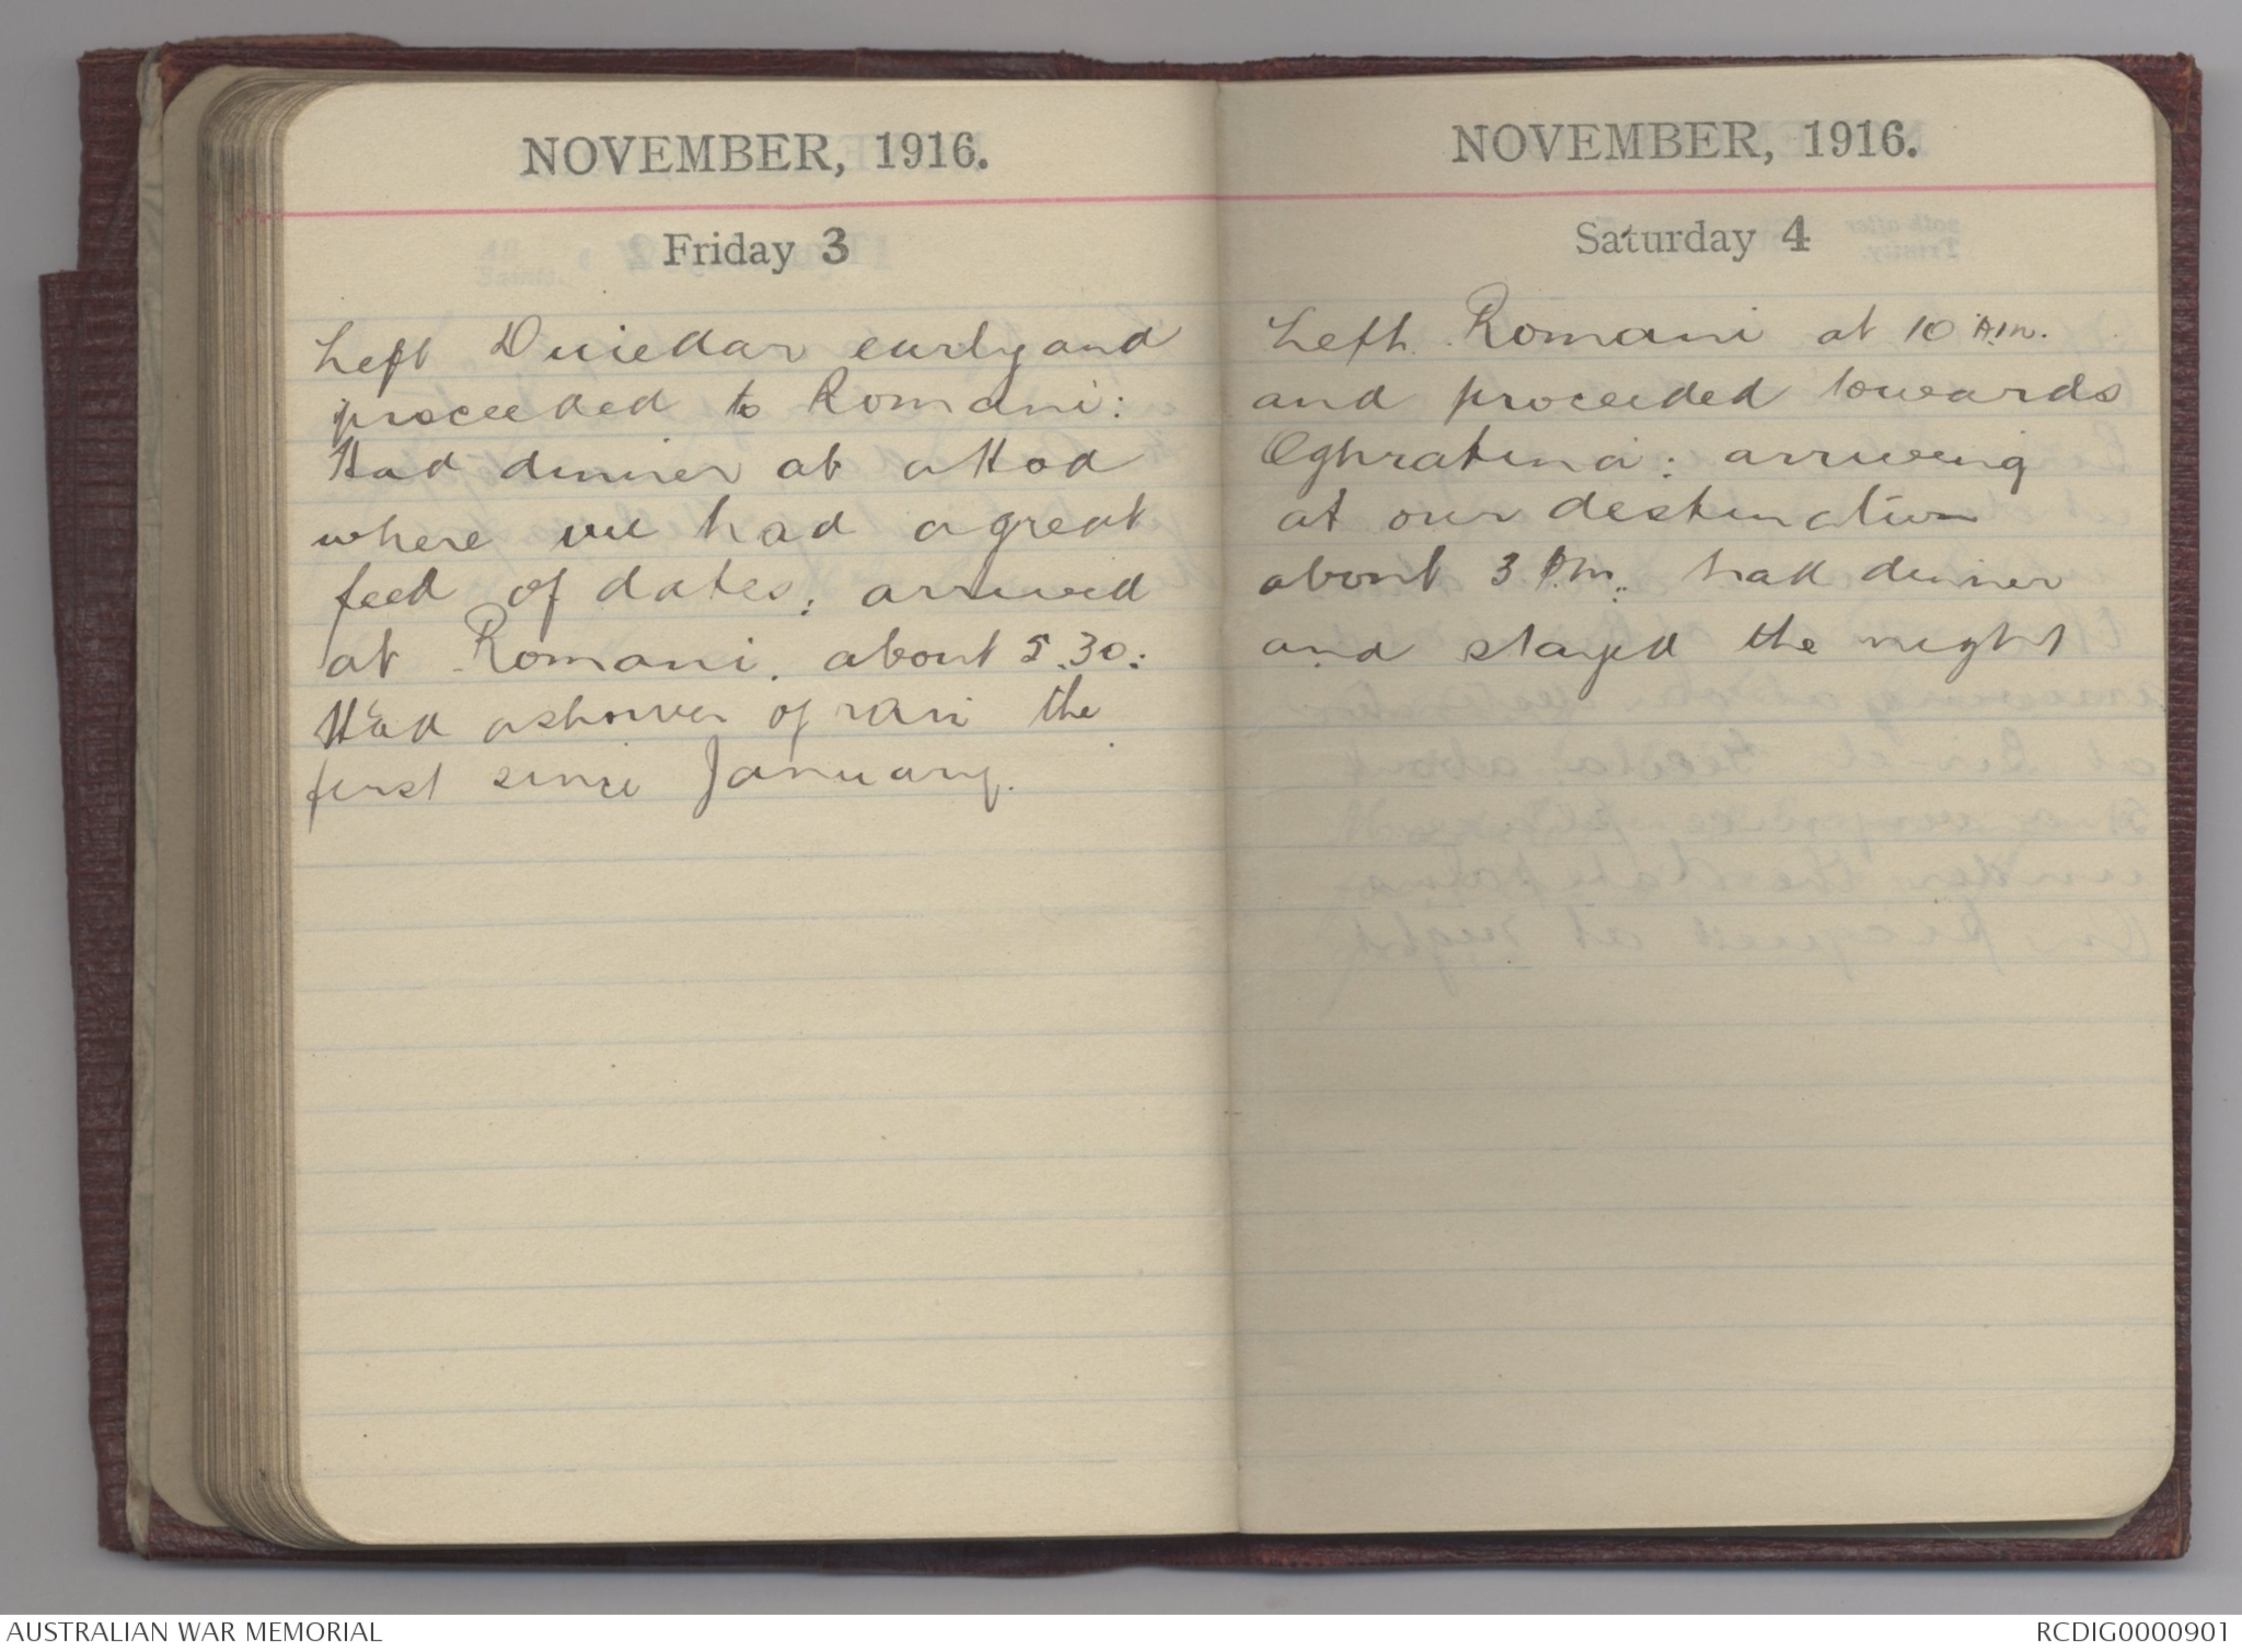 NOVEMBER, 1916.
Friday 3
Left Duiedar early and
proceeded to Romani:
Had dinner at a Hod
where we had a great
feed of dates: arrived
at Romani. about 5.30:
Had a shower of rain the
first since January.
NOVEMBER, 1916.
Saturday 4
Left Romani at 10 A.M.
and proceeded towards
Oghratina: arriving
at our destination
about 3 P.M. had dinner
and stayed the night
AUSTRALIAN WAR MEMORIAL
RCDIG0000901